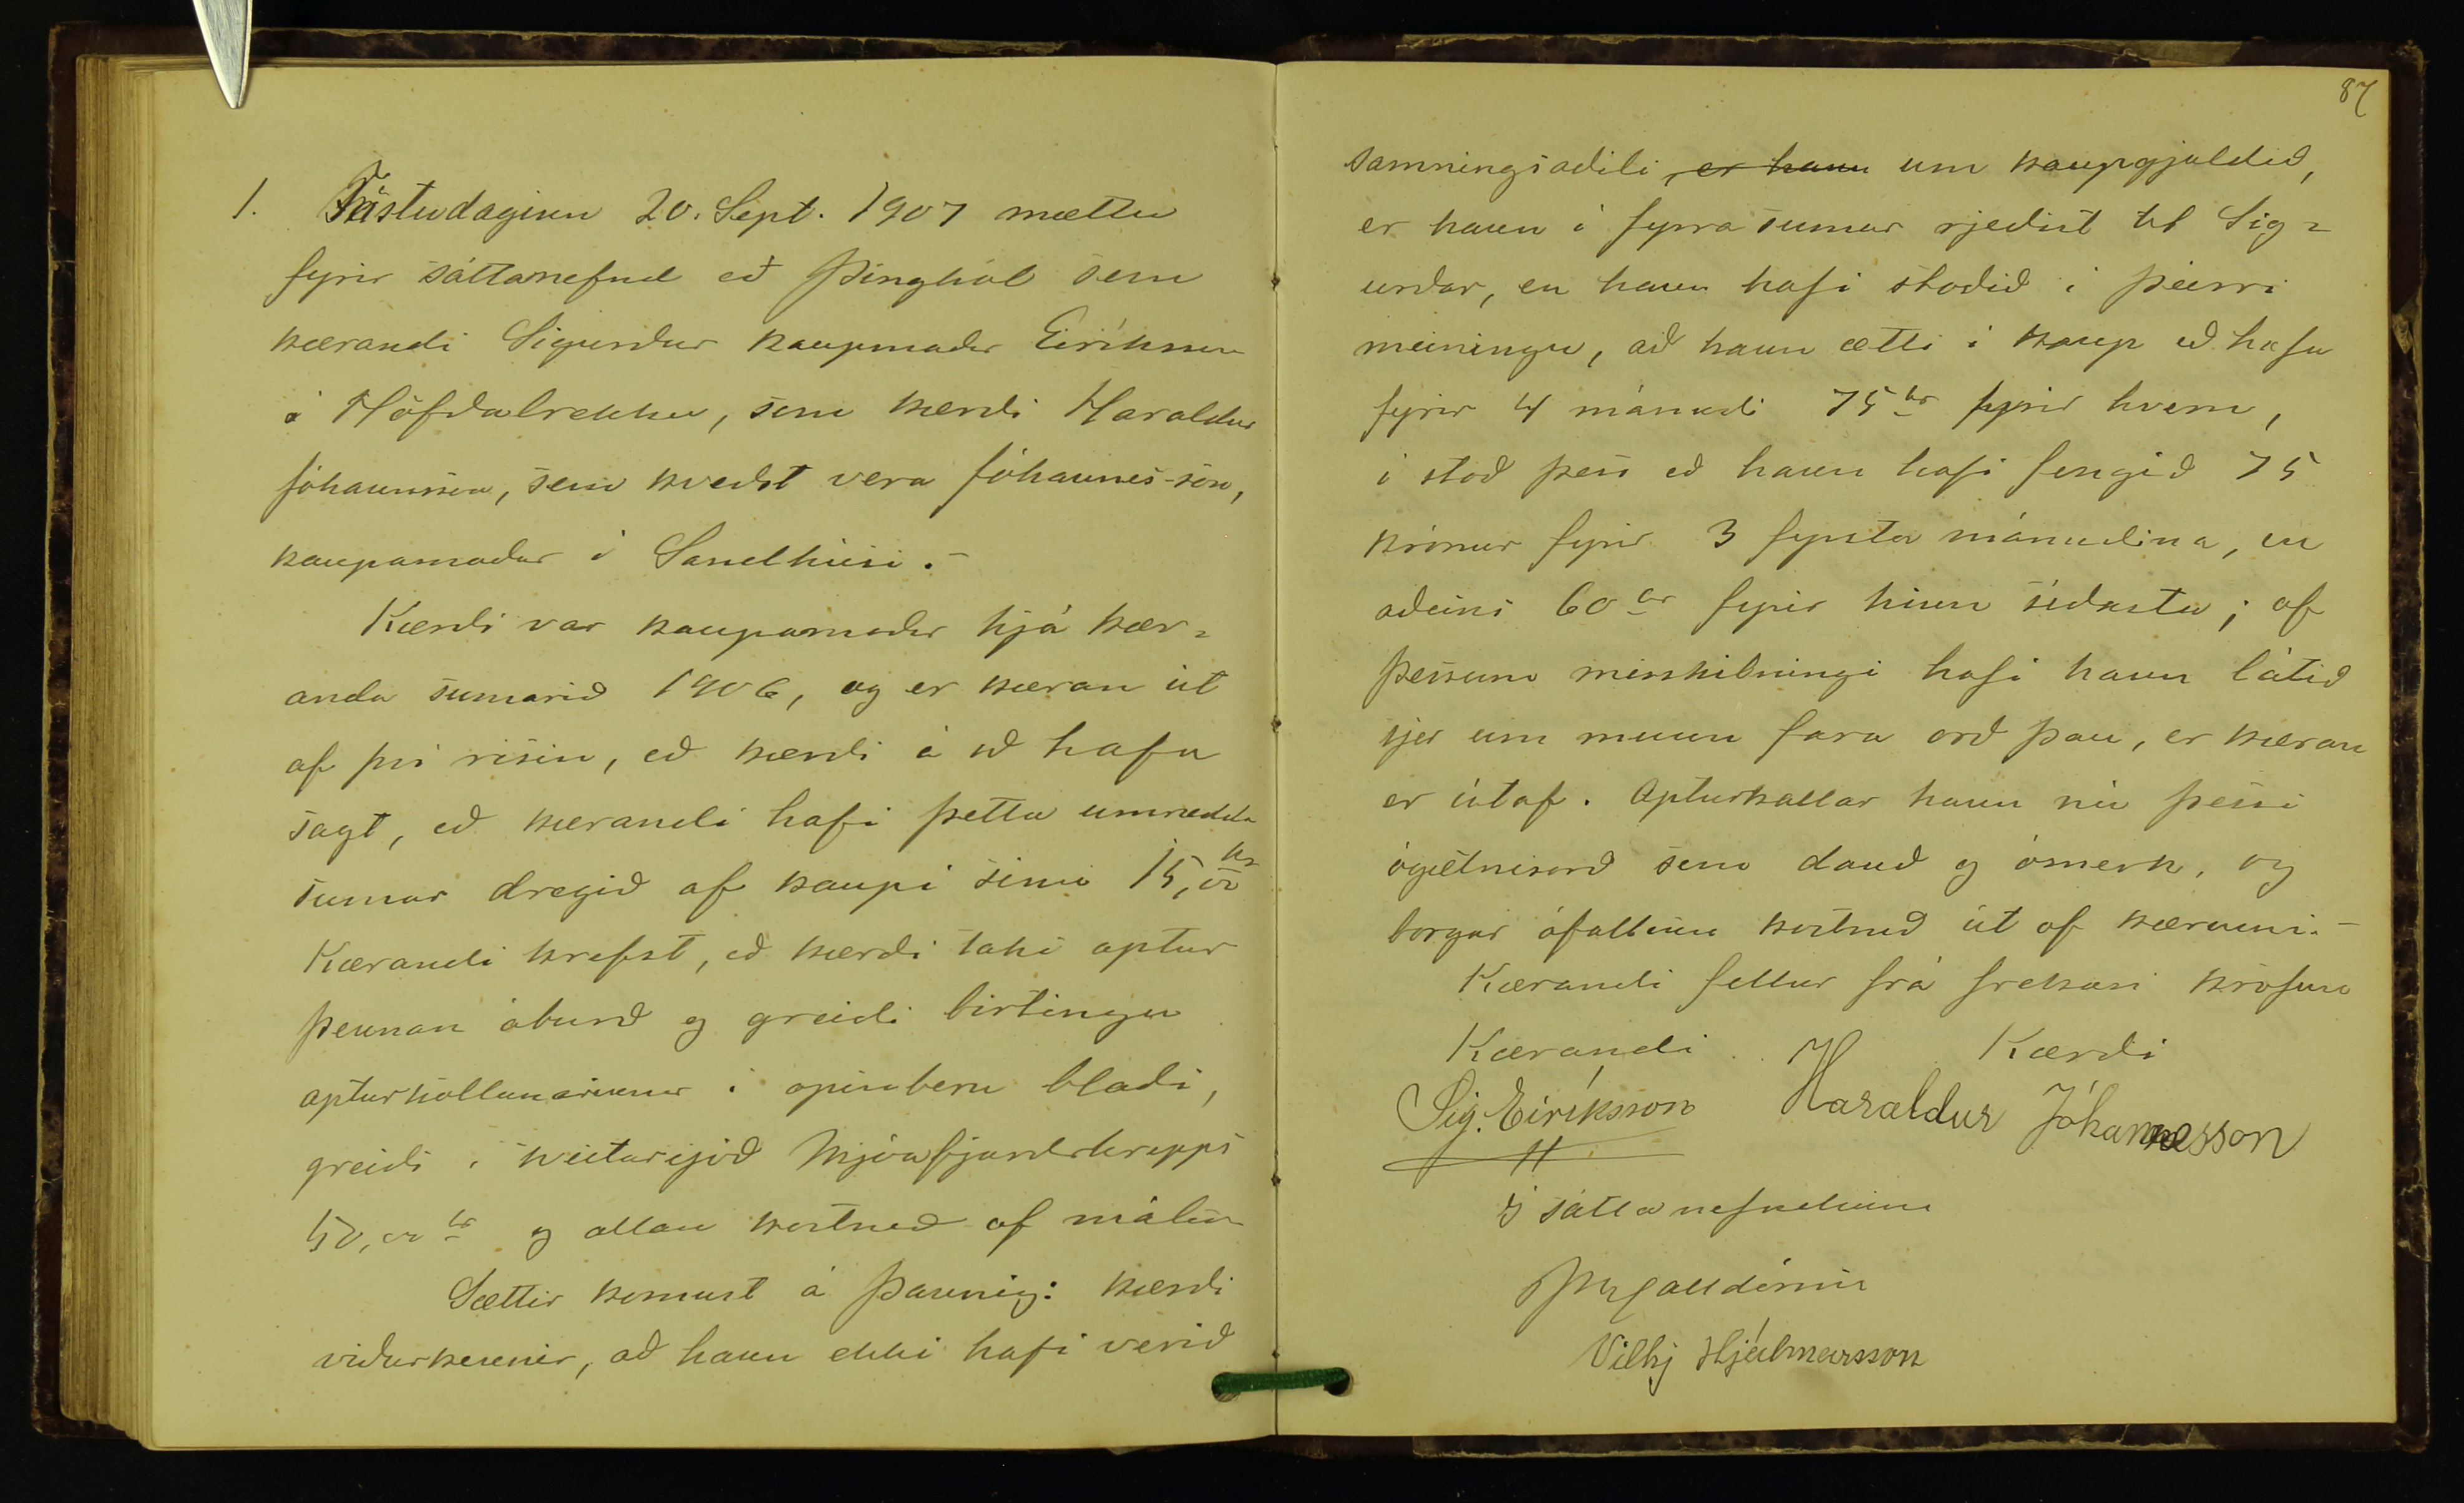 1. Föstudaginn 20. Sept. 1907 mættu
fyrir sáttanefnd að Þinghól sem
kærandi Sigurður kaupmaðr Eiríksson
á Höfðabrekku, sem kærði Haraldur
Jóhannsson, sem kveðst vera Jóhannes-son,
kaupamaður í Sandhúsi.-
Kærði var kaupamaðr hjá kær=
anda sumarið 1906, og er kæran út
af því risin, að kærði á að hafa
sagt, að kærandi hafi þetta umrædda
sumar dregið af kaupi sínu 15,00 kr
Kærandi krefst, að kærði taki aptur
þennan áburð og greiði birtingu
apturköllunarinnar í opinberu blaði,
greiði í sveitarsjóð Mjóafjarðarhrepps
50,00 kr og allan kostnað af málinu
Sættir komust á þannig: kærði
viðurkennir, að hann ekki hafi verið
87
samningsaðili, er hann um kaupgjaldið,
er hann í fyrra sumar rjeðist til Sig=
urðar, en hann hafi staðið í þeirri
meiningu, að hann ætti í kaup að hafa
fyrir 4 mánuði 75 kr fyrir hvern,
í stað þess að hann hafi fengið 75
krónur fyrir 3 fyrsta mánuðina, en
aðeins 60 kr fyrir hinn síðasta; af
þessum misskilningi hafi hann látið
sjer um munn fara orð þau, er kæran
er útaf. Apturkallar hann nú þessi
ógætnisorð sem dauð og ómerk, og
borgar áfallinn kostnað út af kærunni.-
Kærandi fellur frá frekari kröfum
Kærandi H Kærði
Sig. Eiríksson Haraldur Jóhannesson
Í sáttanefndinni
Vilhj Hjálmarsson